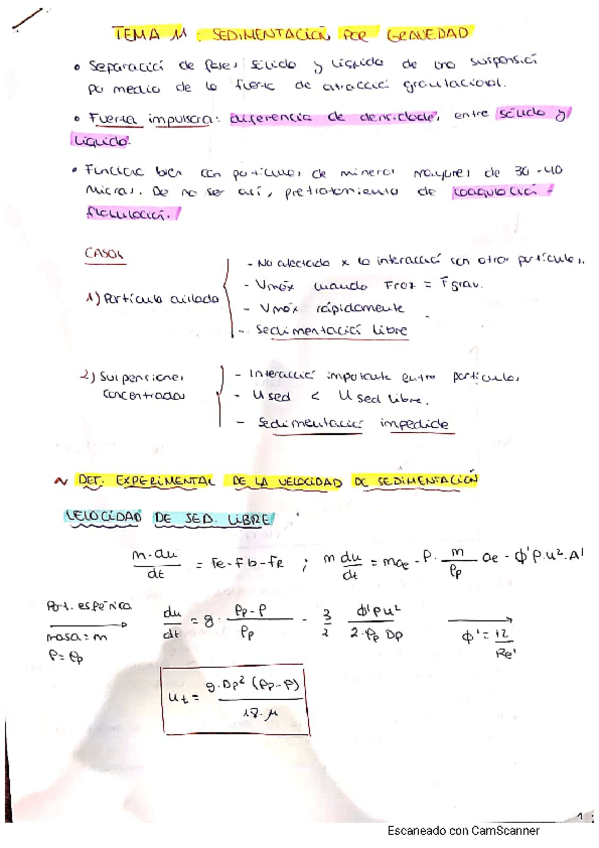 TEMA 11: SEDIMENTACIÓN POR GRAVEDAD
• Separació de fases sólido y líquido de una suspensió
por medio de la fuerza de atracció gravitacional.
• Fuerza impulsora: diferencia de densidades, entre sólido y
líquido.
• Funciona bien con partículas de mineral mayores de 30-40
micras. De no ser así, pretratamiento de coagulació -
floculació.
CASOS
1) Partícula aislada
- No afectada x la interacció con otras partículas.
- Vmáx cuando Froz = Fgrav.
- Vmáx rápidamente
- Sedimentació libre
2) Suspensiones concentradas
- Interacció importante entre partículas
- Used < Used libre.
- Sedimentació impedida
~ DET. EXPERIMENTAL DE LA VELOCIDAD DE SEDIMENTACIÓN
VELOCIDAD DE SED. LIBRE
m·du/dt = Fe-Fb-FR ; m du/dt = mae - ρ · m/ρp ae - φ'ρ·u²·A'
Part. esférica
masa = m
ρ = ρp
du/dt = g · (ρp-ρ)/ρp - 3/2 φ'ρu²/2·ρp Dp
φ' = 12/Re'
ut = g·Dp² (ρp-ρ)/18·μ
1
Escaneado con CamScanner